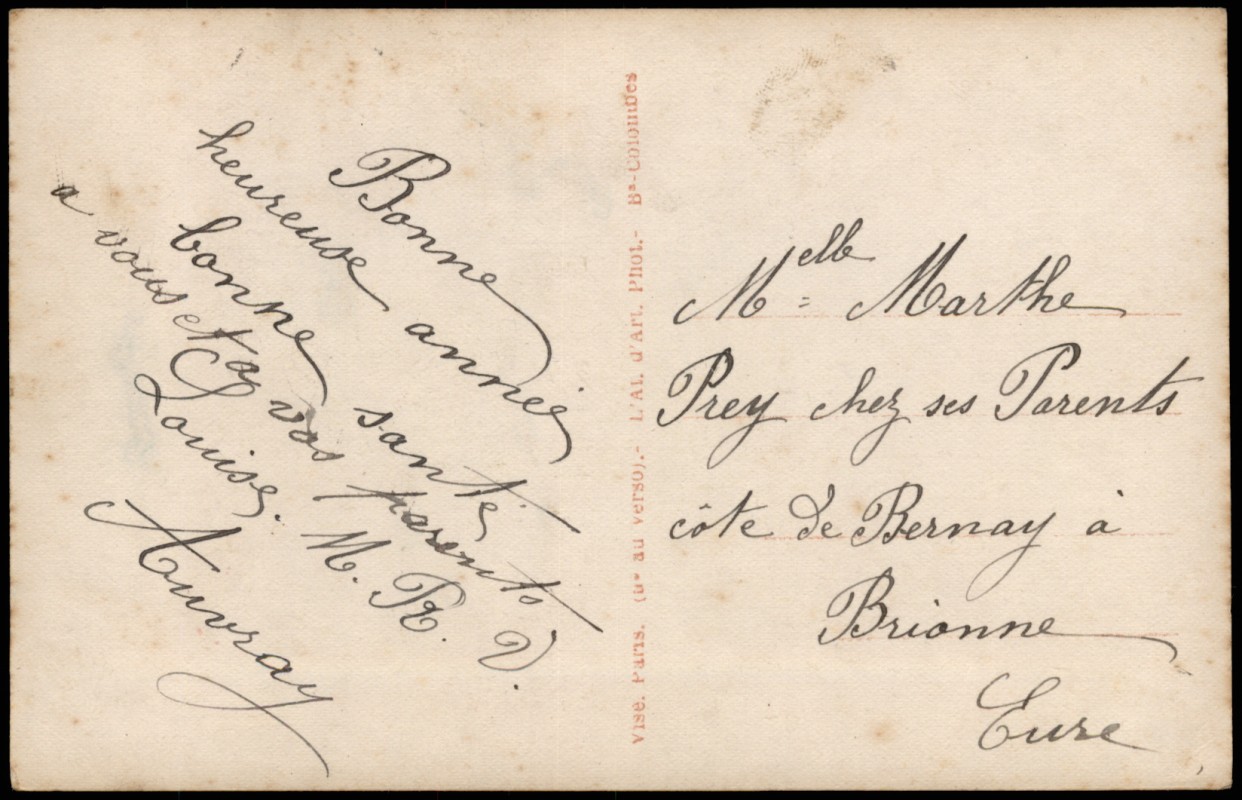 Bonne
heureuse année
bonne santé
a vous et a vos parents
Louise. M. R. V.
Auvray
Visé. Paris. (No au verso).- L'At. d'Art. Phot.- Bs-Colombes
Melle = Marthe
Prey chez ses Parents
côte de Bernay à
Brionne
Eure